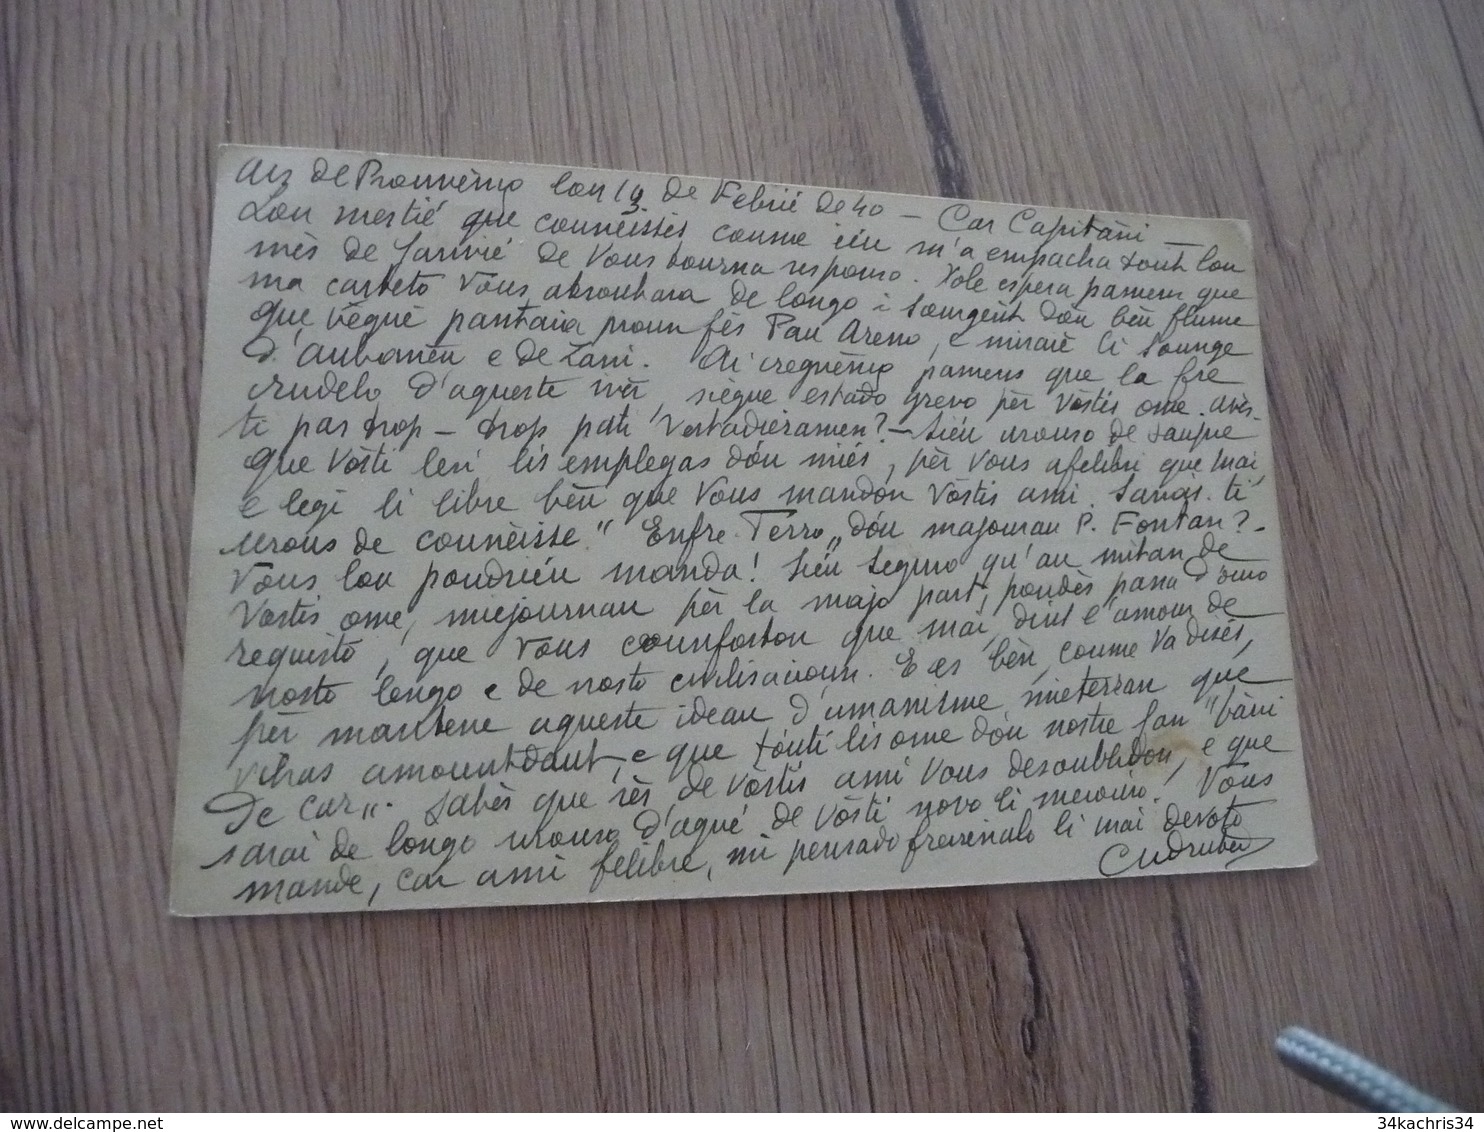 Aix de Prouvènço lou 19 de Febrié de 40 — Car Capitàni —
Lou mestié que counèissès coume iéu m'a empacha tout lou
mès de Janvié de Vous tourna responso. Vole espera pamens que
ma carteto Vous atroubara de longo i sourgènt dóu bèu flume
que vèguè pantaia noun fès Pau Areno, e miraié li sounge
d'Aubanèu e de Zani. Ai cregnènço pamens que la fre
crudèlo d'aqueste ivèr, siègue estado grevo pèr Vòstis ome. Avès-
ti pas trop — trop pati vertadieramen? — Siéu urouso de saupre
que Vòsti lesi lis emplegas dóu miés, pèr Vous afelibri que mai,
e legi li libre bèu que Vous mandon Vòstis ami. Sarias-ti
urous de counèisse "Enfre-Terro" dóu majourau P. Fontan? —
Vous lou poudriéu manda! Siéu seguro qu'au mitan de
Vòstis ome, miejournau pèr la majo part, poudès pana d'ouro
requisto, que Vous counforton que mai dins l'amour de
nosto lengo e de nosto civilisacioun. E es bèn, coume va disès,
pèr mantene aqueste ideau d'umanisme mieterran que
vihas amoundaut, e que tóuti lis ome dóu nostre fan "bàrri
de car". Sabès que rès de Vòstis ami Vous desoublidon, e que
sarai de longo urouso d'agué de Vòsti novo li meiouro! Vous
mande, car ami felibre, mi pensado freirenalo li mai devoto
34kachris34